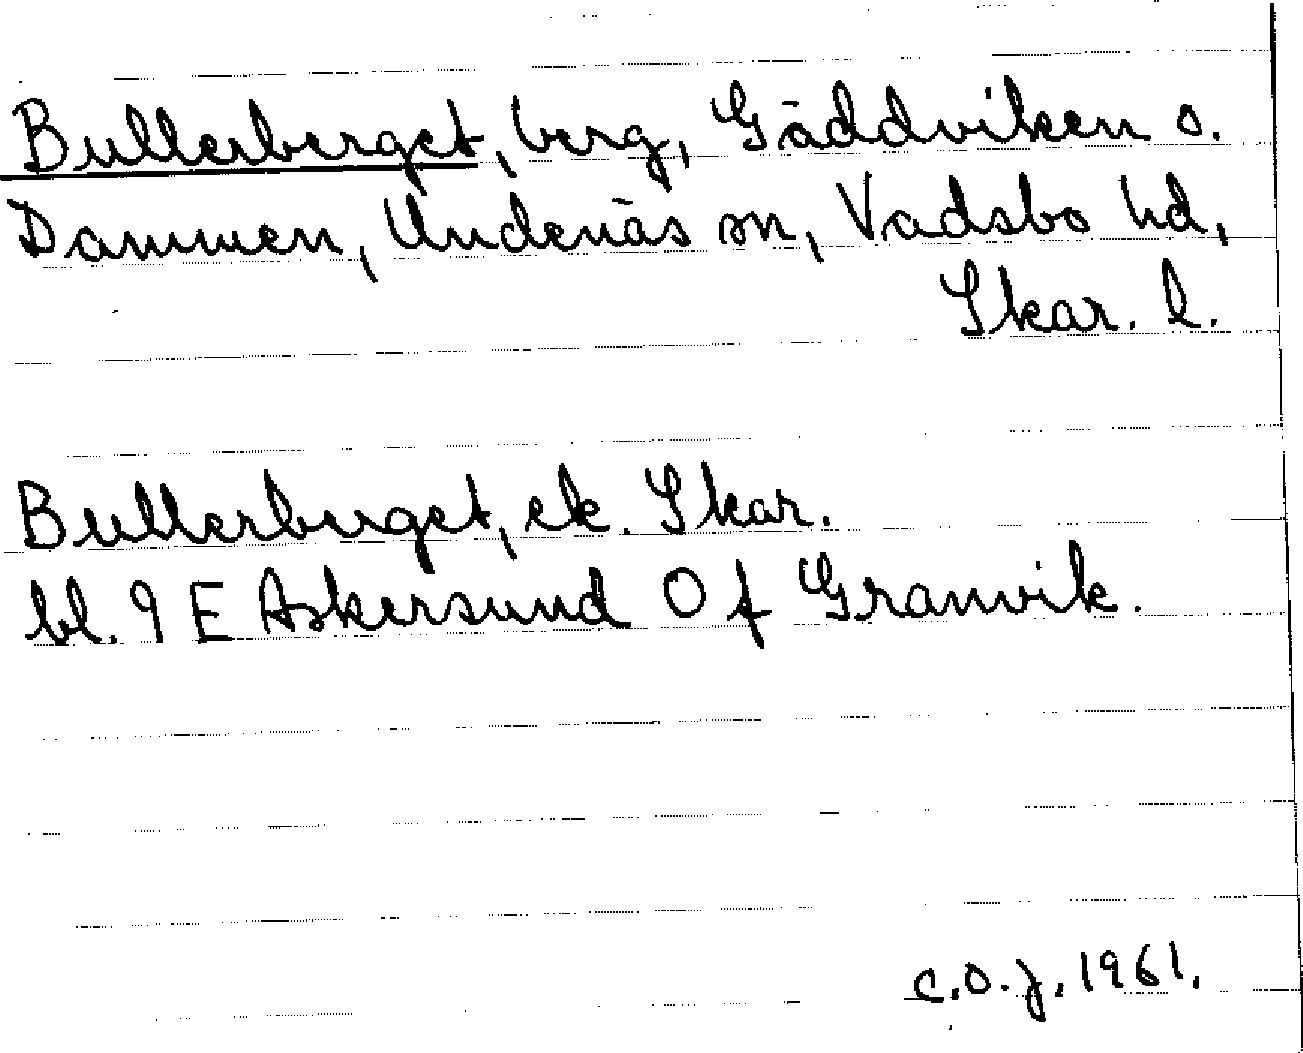 Bullerberget, berg, Gäddviken o.
Dammen, Undenäs sn, Vadsbo hd,
Skar. l.
Bullerberget, ek. Skar.
bl. 9 E Askersund 0 f Granvik.
C.O.J. 1961.